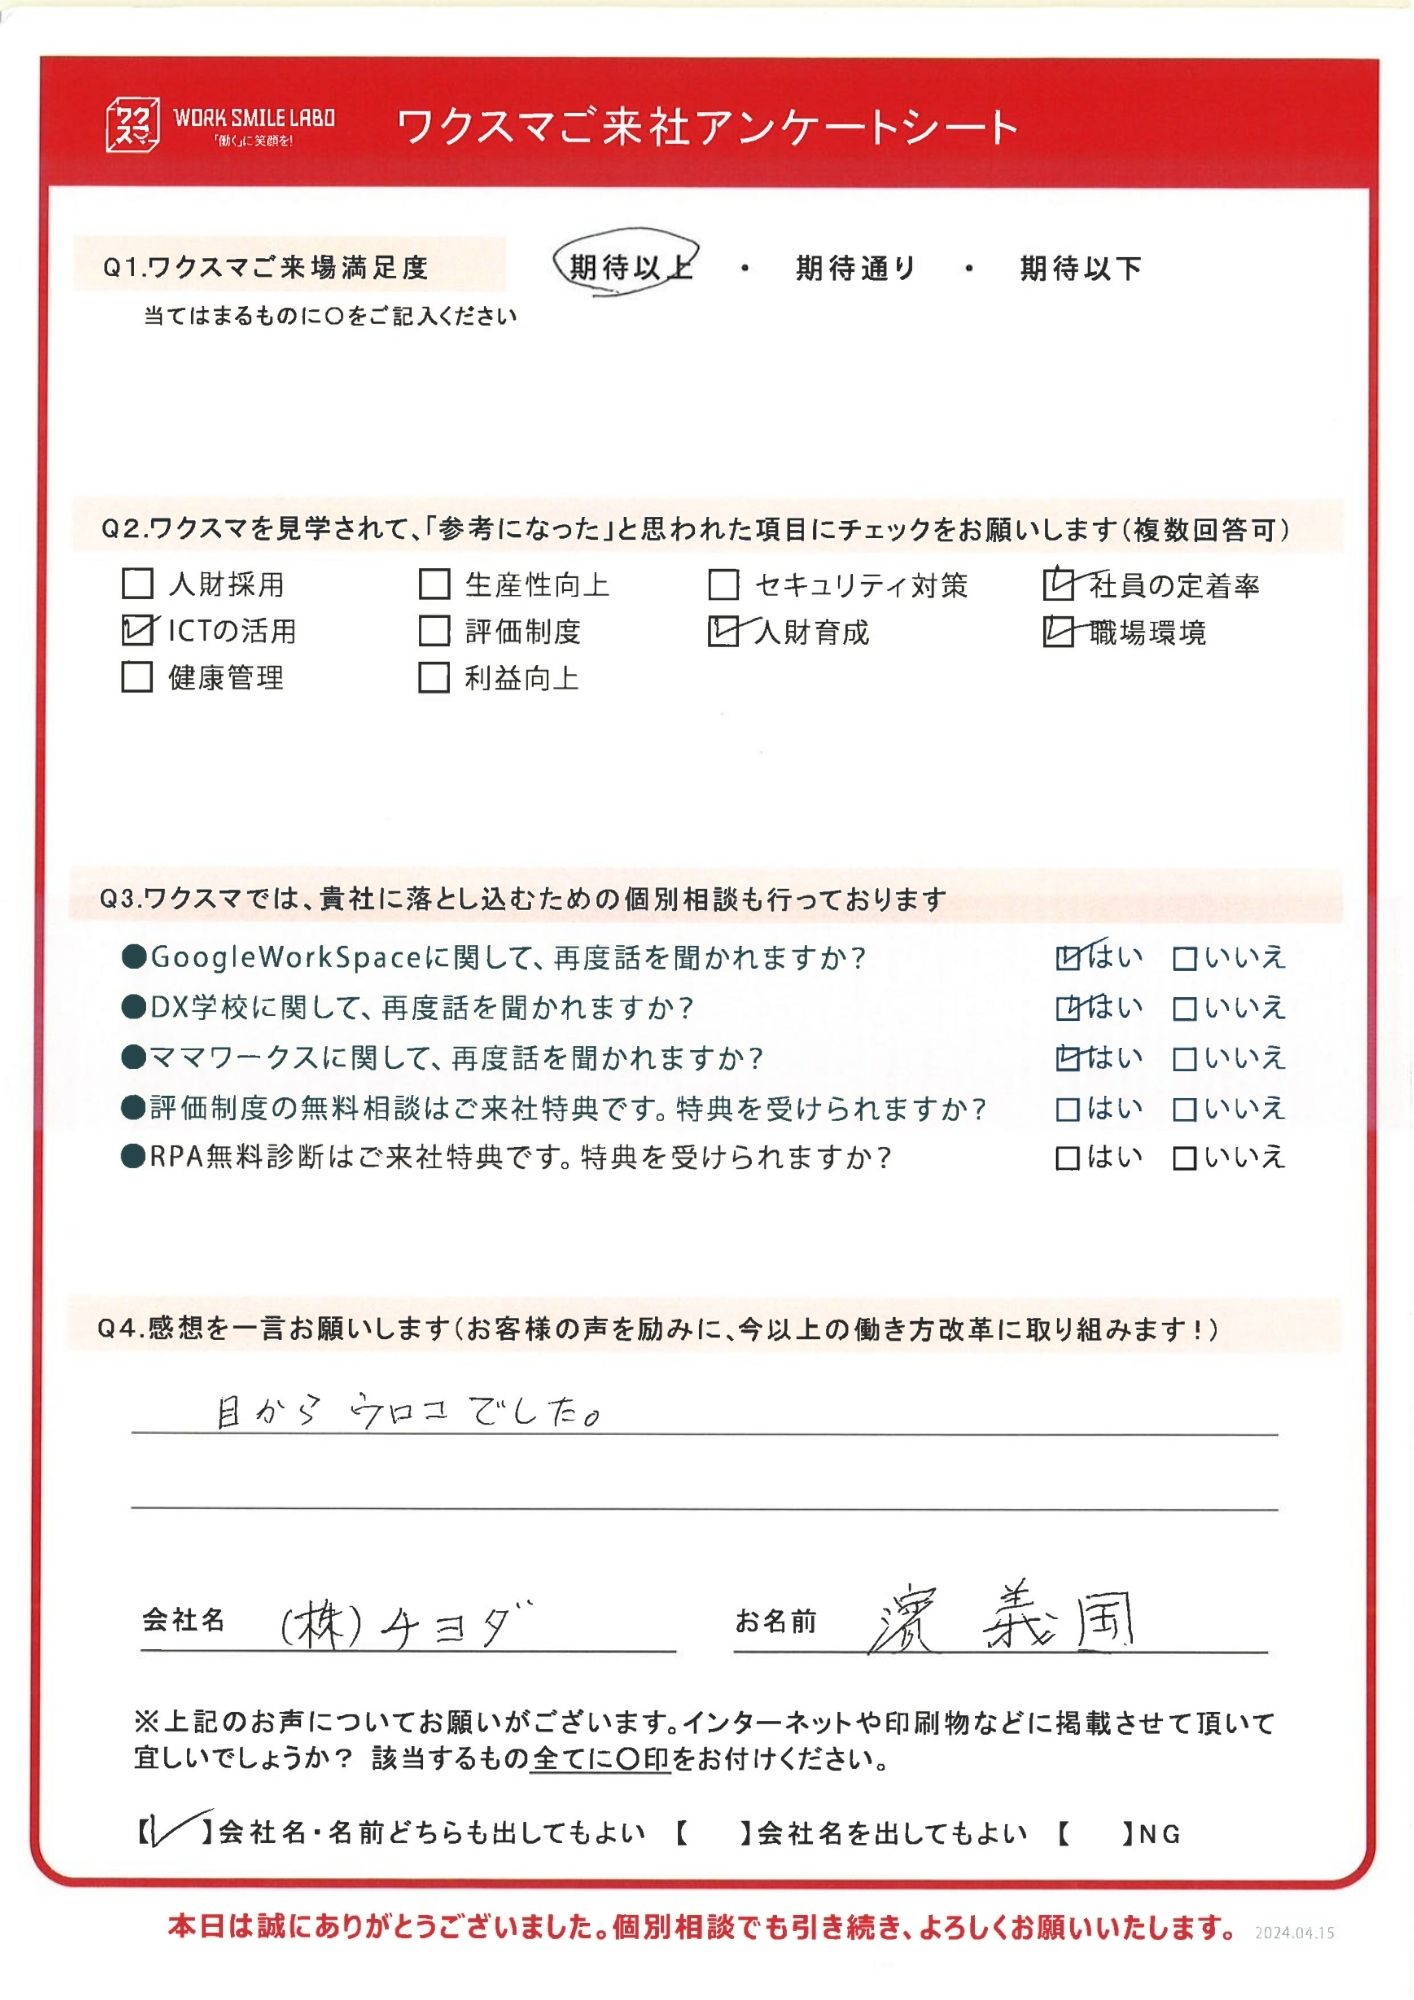 ワクスマ
WORK SMILE LABO
「働く」に笑顔を!
ワクスマご来社アンケートシート
Q1.ワクスマご来場満足度
期待以上 ・ 期待通り ・ 期待以下
当てはまるものに〇をご記入ください
Q2.ワクスマを見学されて、「参考になった」と思われた項目にチェックをお願いします(複数回答可)
□ 人財採用 □ 生産性向上 □ セキュリティ対策 ☑ 社員の定着率
☑ ICTの活用 □ 評価制度 ☑ 人財育成 ☑ 職場環境
□ 健康管理 □ 利益向上
Q3.ワクスマでは、貴社に落とし込むための個別相談も行っております
●GoogleWorkSpaceに関して、再度話を聞かれますか? ☑はい □いいえ
●DX学校に関して、再度話を聞かれますか? ☑はい □いいえ
●ママワークスに関して、再度話を聞かれますか? ☑はい □いいえ
●評価制度の無料相談はご来社特典です。特典を受けられますか? □はい □いいえ
●RPA無料診断はご来社特典です。特典を受けられますか? □はい □いいえ
Q4.感想を一言お願いします(お客様の声を励みに、今以上の働き方改革に取り組みます!)
目からウロコでした。
会社名 (株)チヨダ お名前 濱 義国
※上記のお声についてお願いがございます。インターネットや印刷物などに掲載させて頂いて
宜しいでしょうか? 該当するもの全てに〇印をお付けください。
【✓】会社名・名前どちらも出してもよい 【 】会社名を出してもよい 【 】NG
本日は誠にありがとうございました。個別相談でも引き続き、よろしくお願いいたします。 2024.04.15